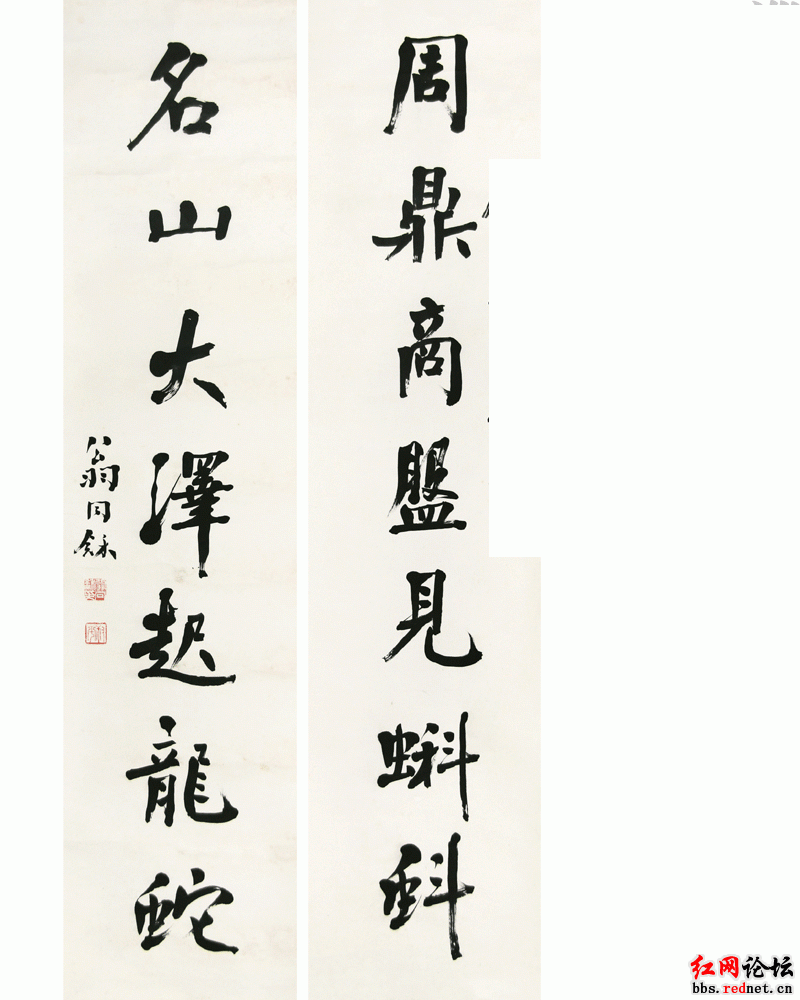 周鼎商盤見蝌蚪
名山大澤起龍蛇
翁同龢
红网论坛
bbs.rednet.cn